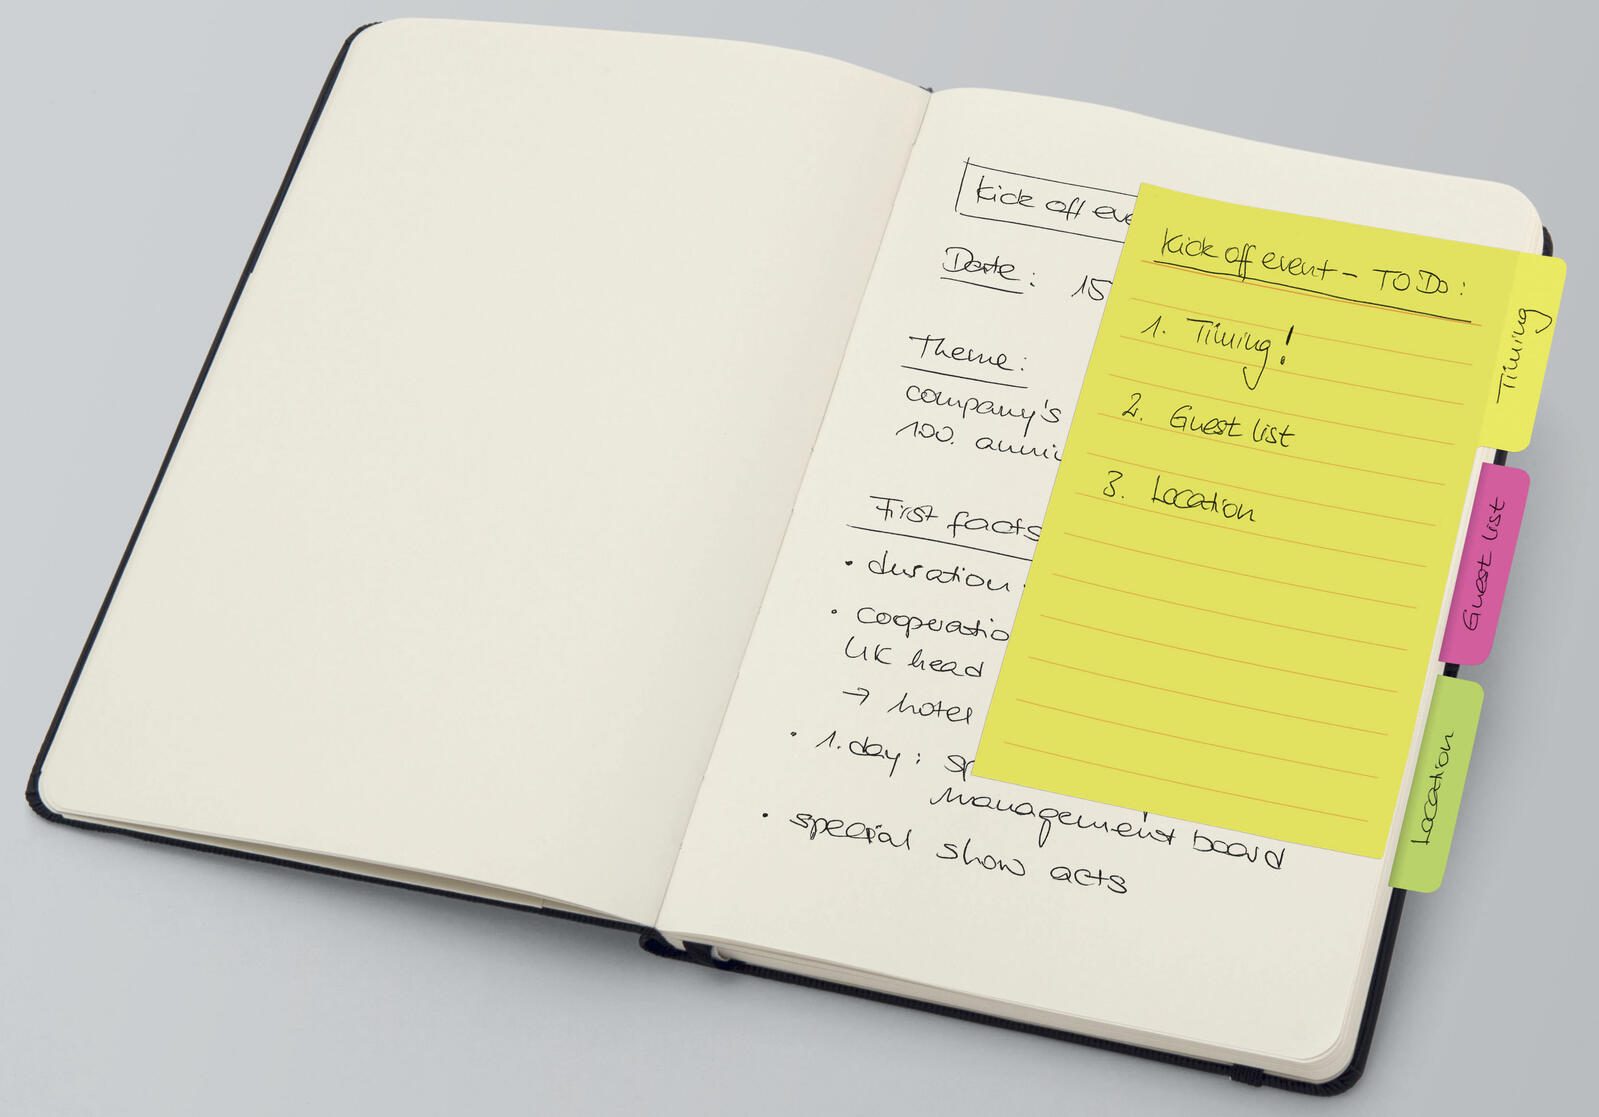 Kick off eve
Date: 15
Theme:
company's
100. anni
First facts
• duration
• cooperatio
UK head
→ hotel
• 1. day: sp
management board
• special show acts
Kick off event - TO Do:
1. Timing!
2. Guest list
3. Location
Timing
Guest list
Location